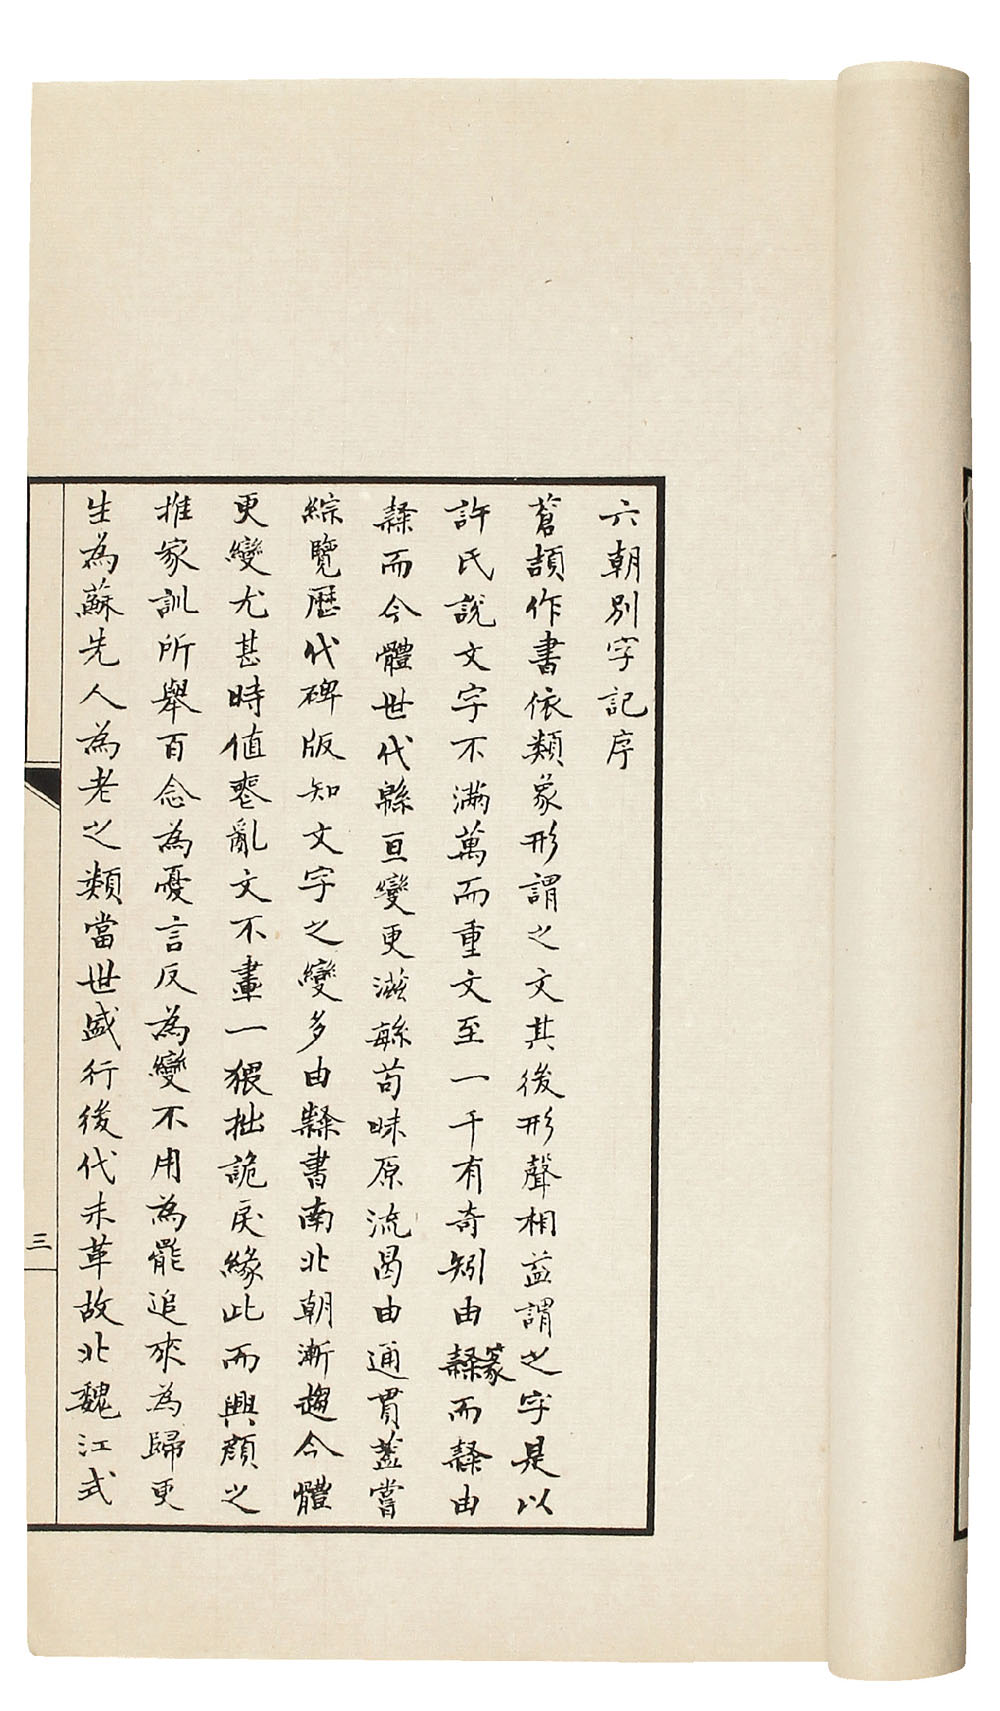 六朝別字記序
蒼頡作書依類象形謂之文其後形聲相益謂之字是以
許氏說文字不滿萬而重文至一千有奇矧由隸篆而隸由
隸而今體世代緜亘變更滋緐苟昧原流曷由通貫蓋嘗
綜覽歷代碑版知文字之變多由隸書南北朝漸趨今體
更變尤甚時值喪亂文不畫一猥拙詭戾緣此而興顏之
推家訓所舉百念為憂言反為變不用為罷追來為歸更
生為蘇先人為老之類當世盛行後代未革故北魏江式
三